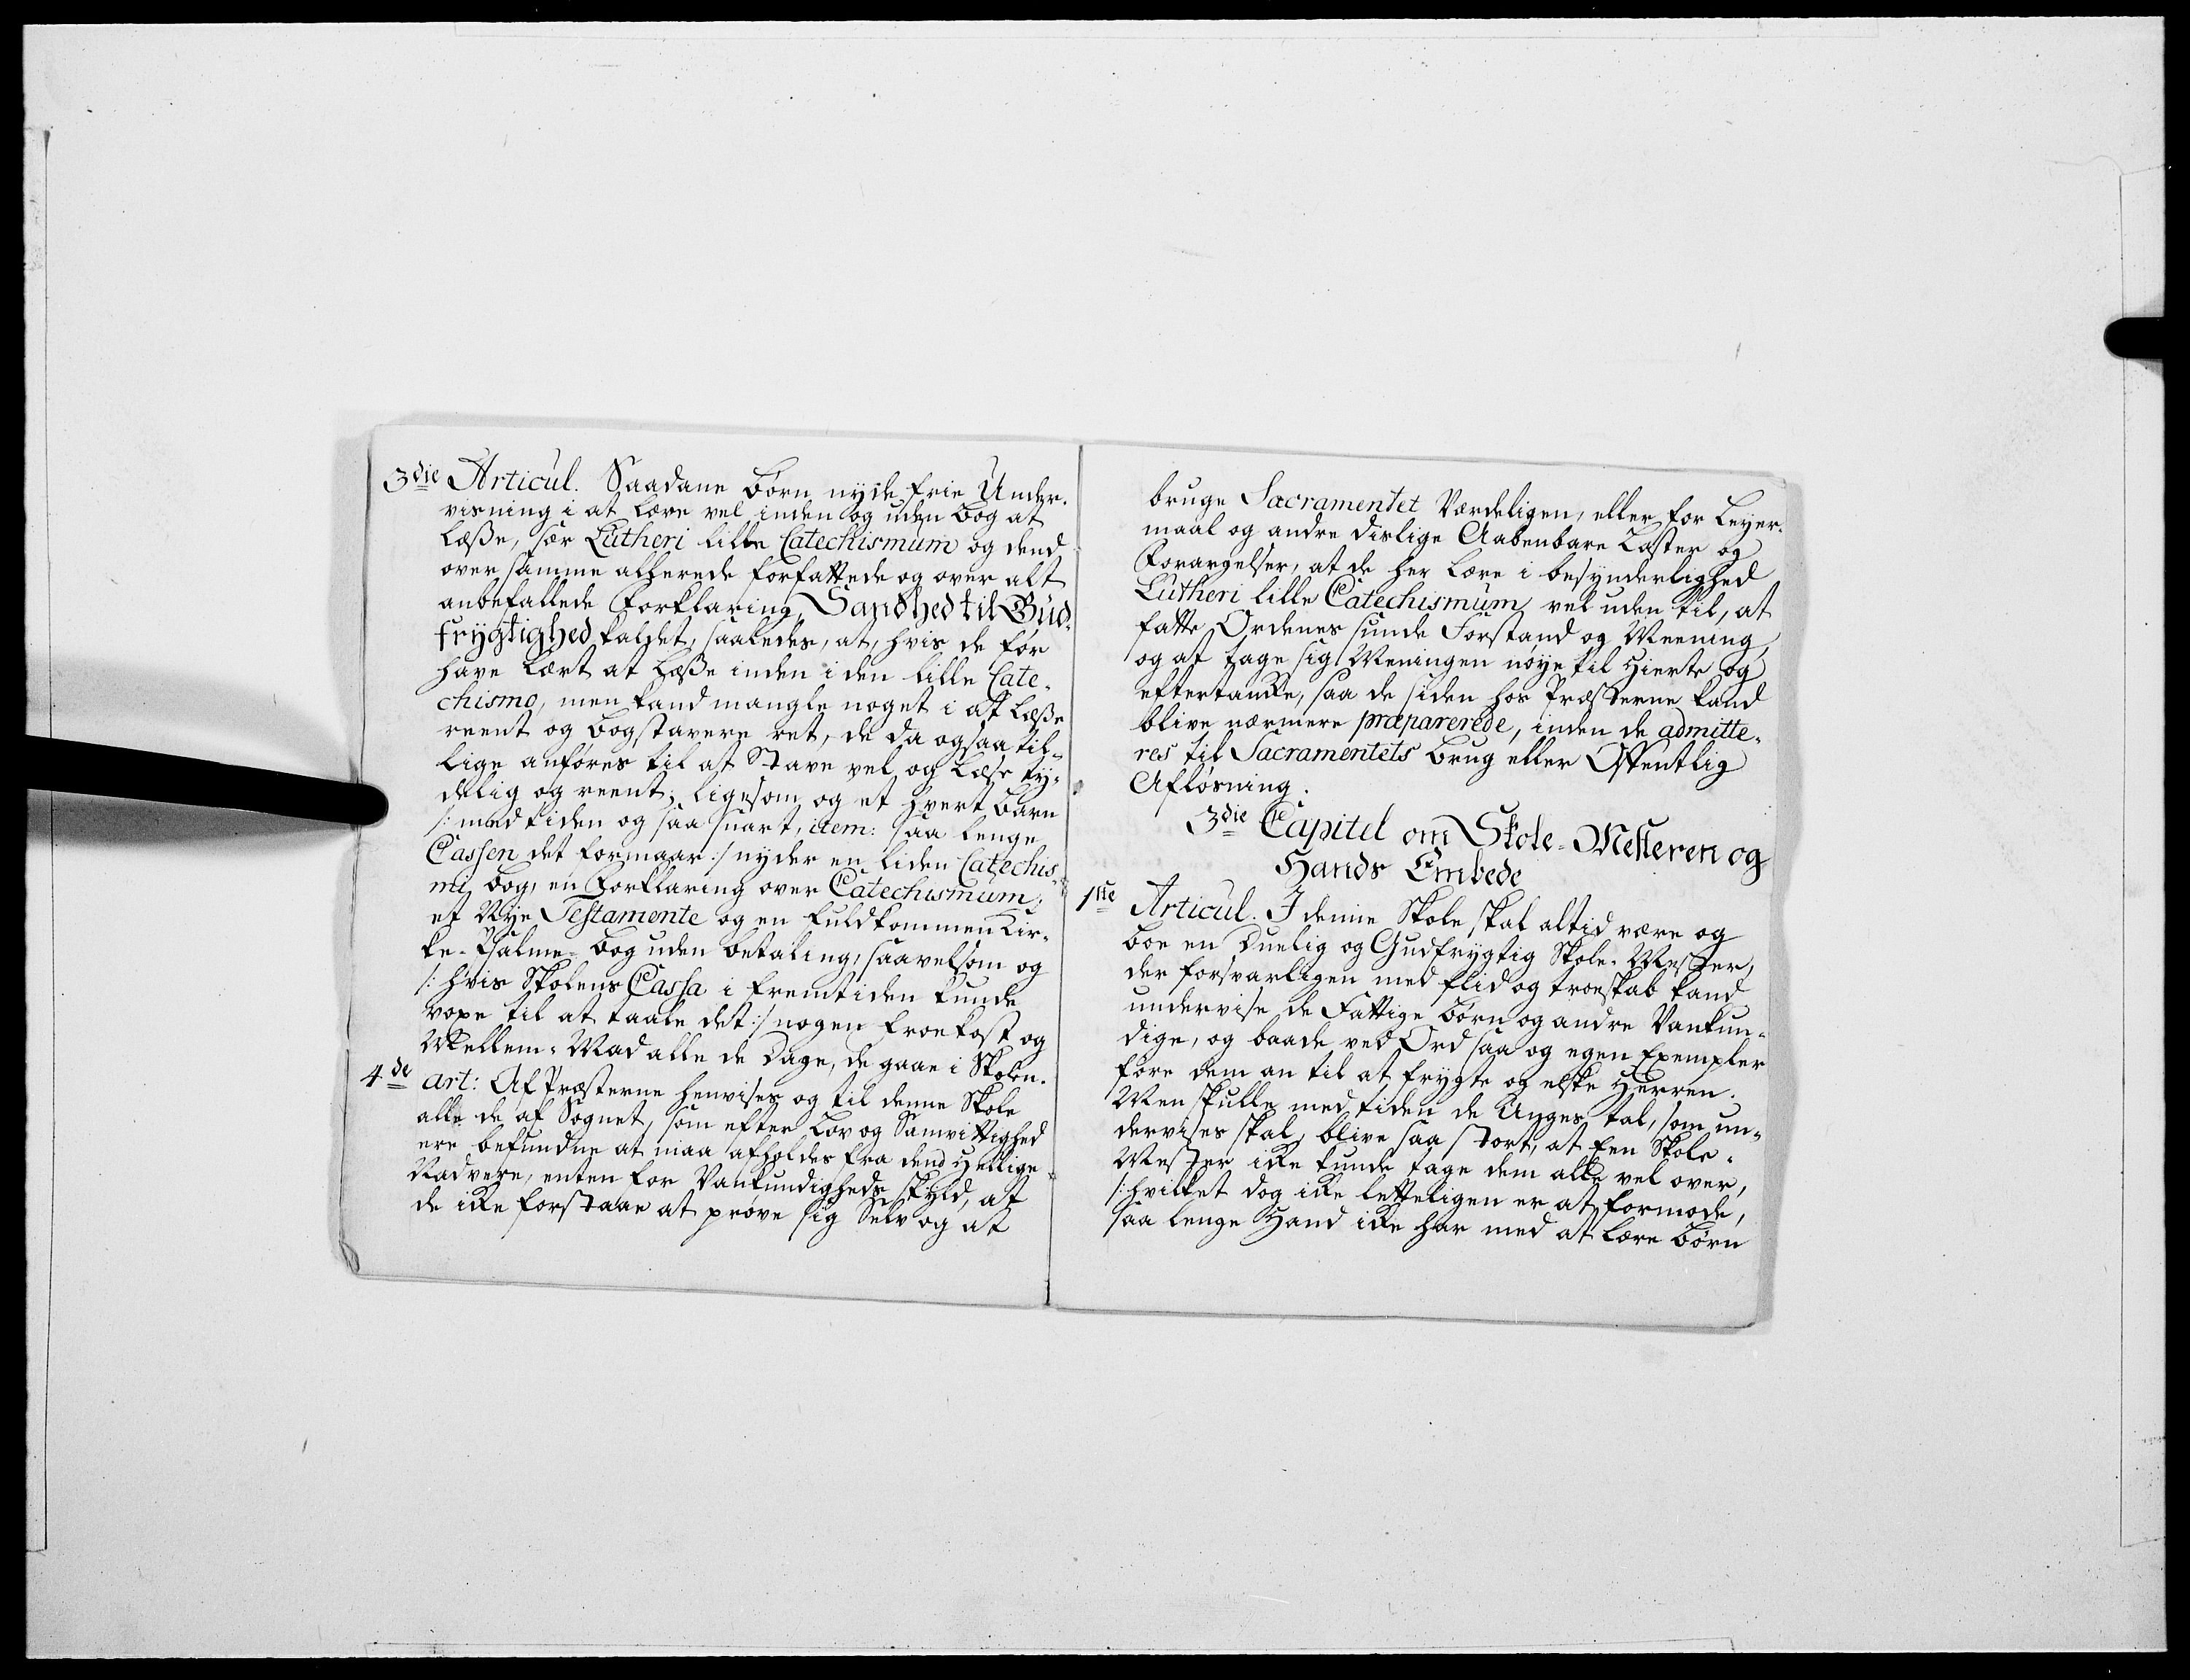 3die Articul. Saadane Børn nyde frie Under-
visning i at lære vel inden og uden bog at
læsse, sær Lutheri lille Catechismum og dend
over samme allerede forfattede og over alt
anbefallede Forklaring, Sandhed til Gud-
frygtighed kaldet, saaledes, at, hvis de før
have lært at læsse inden i den lille Cate-
chismo, men kand mangle noget i at læsse
reent og bogstavere ret, de da ogsaa til-
lige anføres til at Stave vel og læse ty-
delig og reent; ligesom og et hvert Barn
/: med tiden og saa snart, item: saa lenge
Cassen det formaar :/ nyder en liden Catechis-
mi bog, en Forklaring over Catechismum,
et Nye Testamente og en fuldkommen Kir-
ke-Psalme-bog uden betaling, saavelsom og
/: hvis Skolens Cassa i fremtiden kunde
voxe til at taale det :/ nogen Frokost og
Mellem-Mad alle de Dage, de gaae i Skolen.
4de art: Af Præsterne henvises og til denne Skole
alle de af Sognet, som efter Lov og Samvittighed
ere befundne at maa afholdes fra dend Hellige
Nadvere, enten for Vankundigheds skyld, at
de ikke forstaae at prøve sig Selv og at
bruge Sacramentet Værdeligen, eller for Leyer-
maal og andre dislige Aabenbare Laster og
Forargelser, at de her lære i besynderlighed
Lutheri lille Catechismum vel uden til, at
fatte Ordenes sunde Forstand og Meening,
og at tage sig Meningen nøye til Hierte og
eftertanke, saa de siden hos Præsterne kand
blive nærmere præparerede, inden de admitte-
res til Sacramentets brug eller Offentlig
Afløsning.
3die Capitel om Skole-Mesteren og
Hands Embede
1ste Articul. I denne Skole skal altid være og
boe en Duelig og Gudfrygtig Skole-Mester,
der forsvarligen med flid og troeskab kand
undervise de Fattige Børn og andre Vankun-
dige, og baade ved Ord saa og egen Exempler
føre dem an til at frygte og elske Herren.
Men skulle med tiden de Unges tal, som un-
dervises skal, blive saa stort, at Een Skole-
Mester ikke kunde tage dem alle vel over,
/: hvilket dog ikke letteligen er at formode,
saa lenge Hand ikke har med at lære Børn